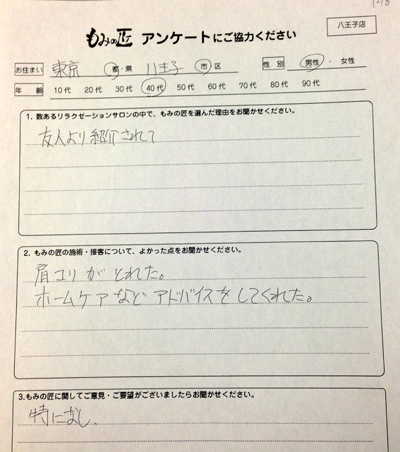 八王子店
もみの匠 アンケートにご協力ください
お住まい 東京 都・県 八王子 市・区 性別 男性・女性
年齢 10代 20代 30代 40代 50代 60代 70代 80代 90代
1. 数あるリラクゼーションサロンの中で、もみの匠を選んだ理由をお聞かせください。
友人より紹介されて
2. もみの匠の施術・接客について、よかった点をお聞かせください。
肩コリがとれた。
ホームケアなどアドバイスをしてくれた。
3.もみの匠に関してご意見・ご要望がございましたらお聞かせください。
特になし、